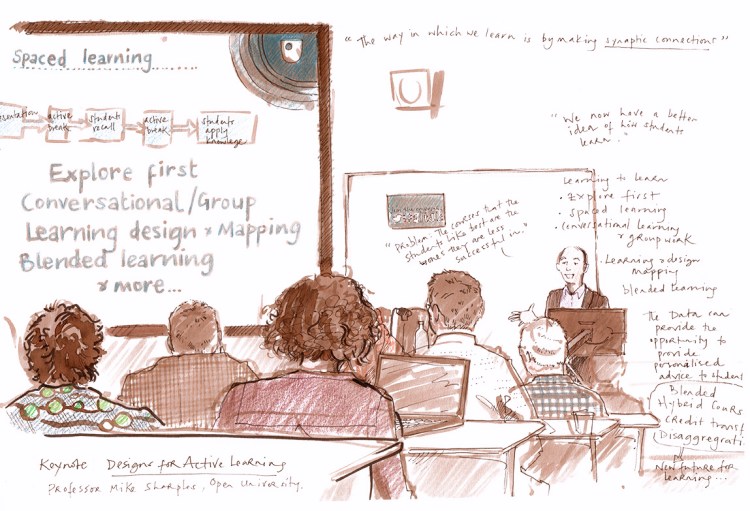 Spaced learning
"The way in which we learn is by making synaptic connections"
esentation
active
break
students
recall
active
break
students
apply
knowledge
Explore first
Conversational/Group
Learning design & Mapping
Blended learning
& more...
"We now have a better
idea of how students
learn."
"Problem: The courses that the
students like best are the
ones they are less
successful in."
Learning to learn
• Explore first
• spaced learning
• conversational learning
& group work
• Learning & design
mapping
blended learning
The Data can
provide the
opportunity to
provide
personalised
advice to student
Blended
Hybrid Cours
credit transf
Disaggregrati
New future for
learning...
Keynote Designs for Active Learning
Professor Mike Sharples, Open University.